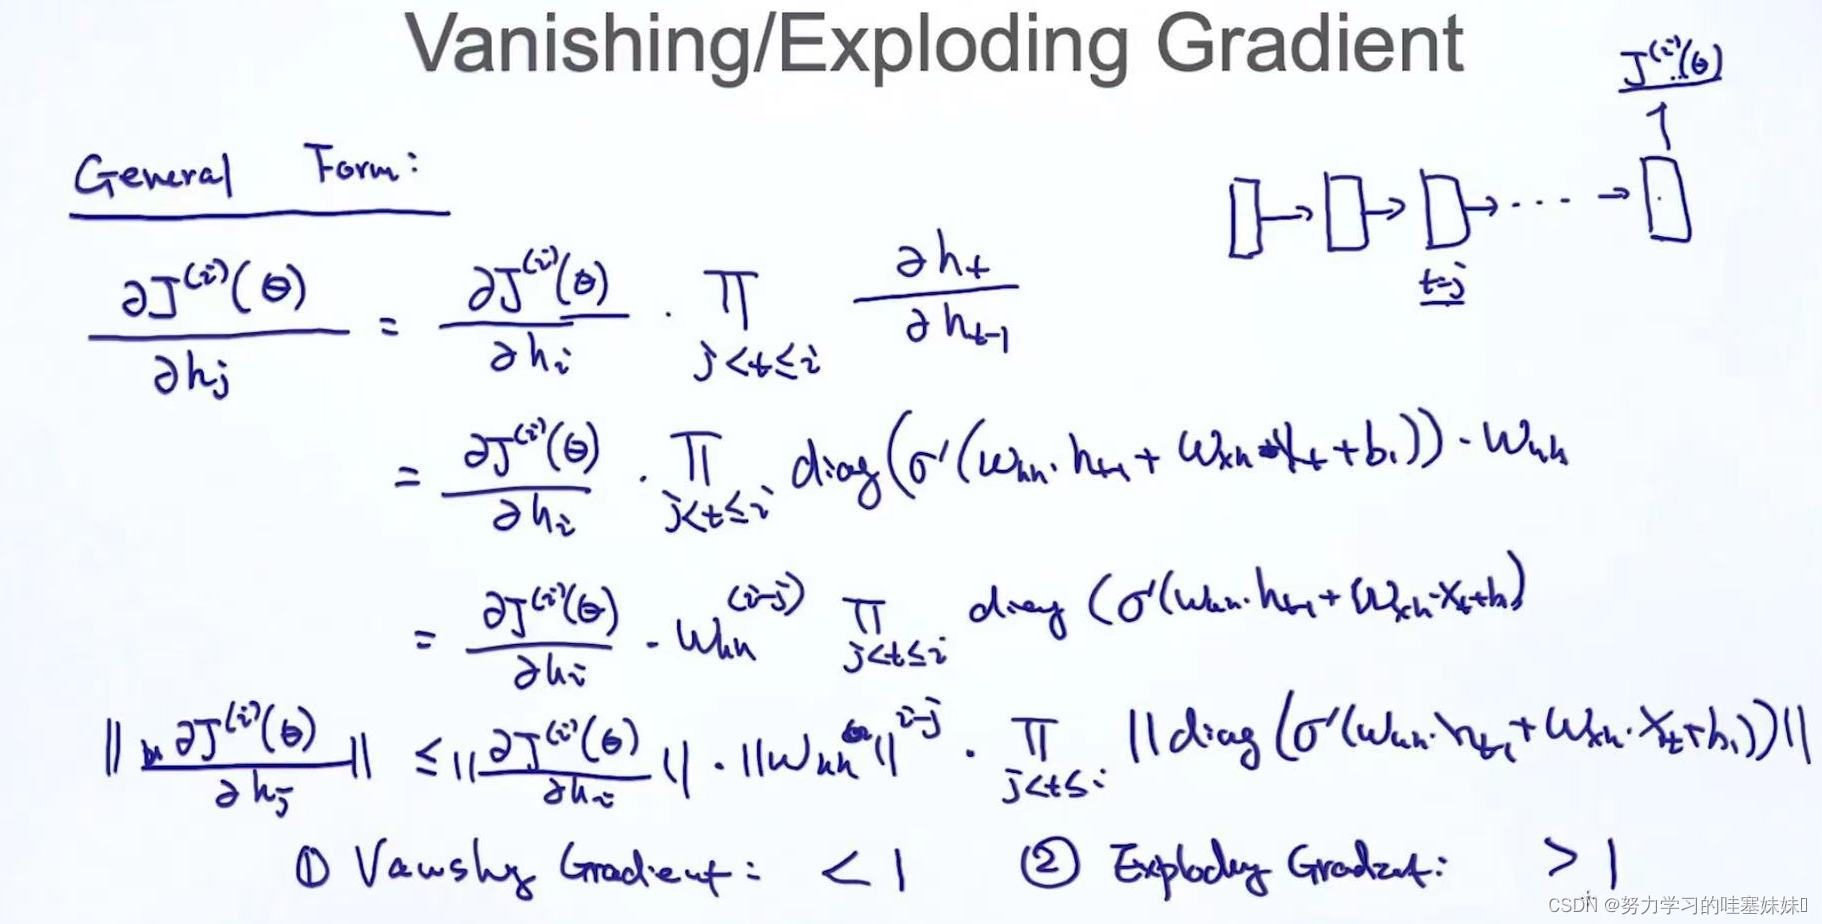 Vanishing/Exploding Gradient
J⁽ⁱ⁾(θ)
↑
General Form:
→ → → ··· →
t=j
∂J⁽ⁱ⁾(θ)/∂hj = ∂J⁽ⁱ⁾(θ)/∂hi · ∏ j<t≤i ∂ht/∂ht-1
= ∂J⁽ⁱ⁾(θ)/∂hi · ∏ j<t≤i diag(σ'(Whh·ht-1 + Wxh·Xt + b1))·Whh
= ∂J⁽ⁱ⁾(θ)/∂hi · Whh⁽ⁱ⁻ʲ⁾ ∏ j<t≤i diag(σ'(Whh·ht-1 + Wxh·Xt+b1)
||∂J⁽ⁱ⁾(θ)/∂hj|| ≤ ||∂J⁽ⁱ⁾(θ)/∂hi|| · ||Whh||ⁱ⁻ʲ · ∏ j<t≤i ||diag(σ'(Whh·ht-1 + Wxh·Xt+b1))||
① Vanishing Gradient: < 1 ② Exploding Gradient: > 1
CSDN @努力学习的哇塞妹妹